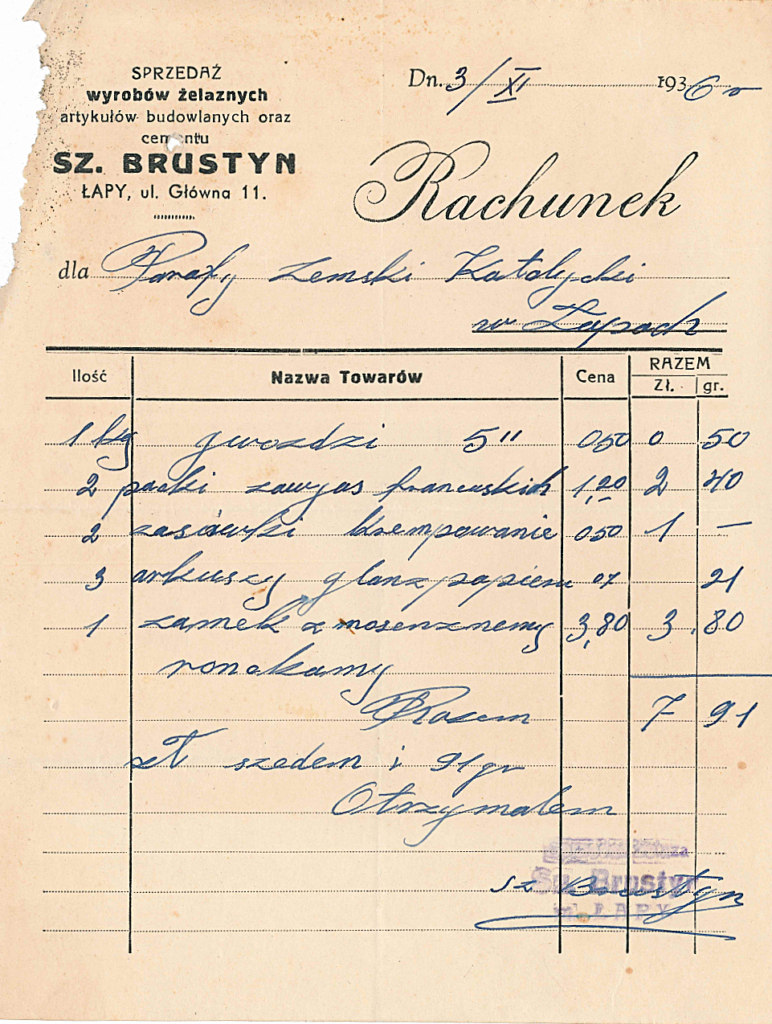 SPRZEDAŻ
wyrobów żelaznych
artykułów budowlanych oraz
cementu
SZ. BRUSTYN
ŁAPY, ul. Główna 11.
Dn. 3/XI 1936 r
Rachunek
dla Parafy Zemski Katolycki
w Łapach
Ilość Nazwa Towarów Cena RAZEM
Zł. gr.
1 kg gwozdzi 5" 050 0 50
2 packi zawyas francuskich 1,20 2 40
2 zasówki krempowanie 050 1 —
3 arkuszy glanzpapieru 07 21
1 zamek z mosenznemy 3,80 3.80
ronckamy
Razem 7 91
zł szedem i 91 gr
Otrzymalem
Sz. Brustyn
ŁAPY
Sz Brustyn